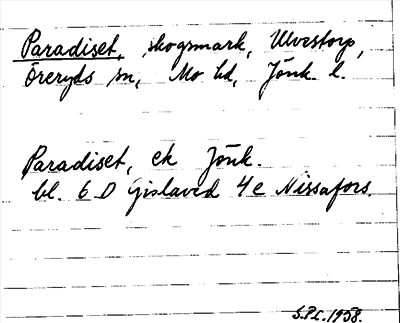 Paradiset, skogsmark, Ulvestorp,
Öreryds sn, Mo hd, Jönk l.
Paradiset, ek Jönk.
bl. 6 D Gislaved 4 e Nissafors.
S.P.L. 1958.